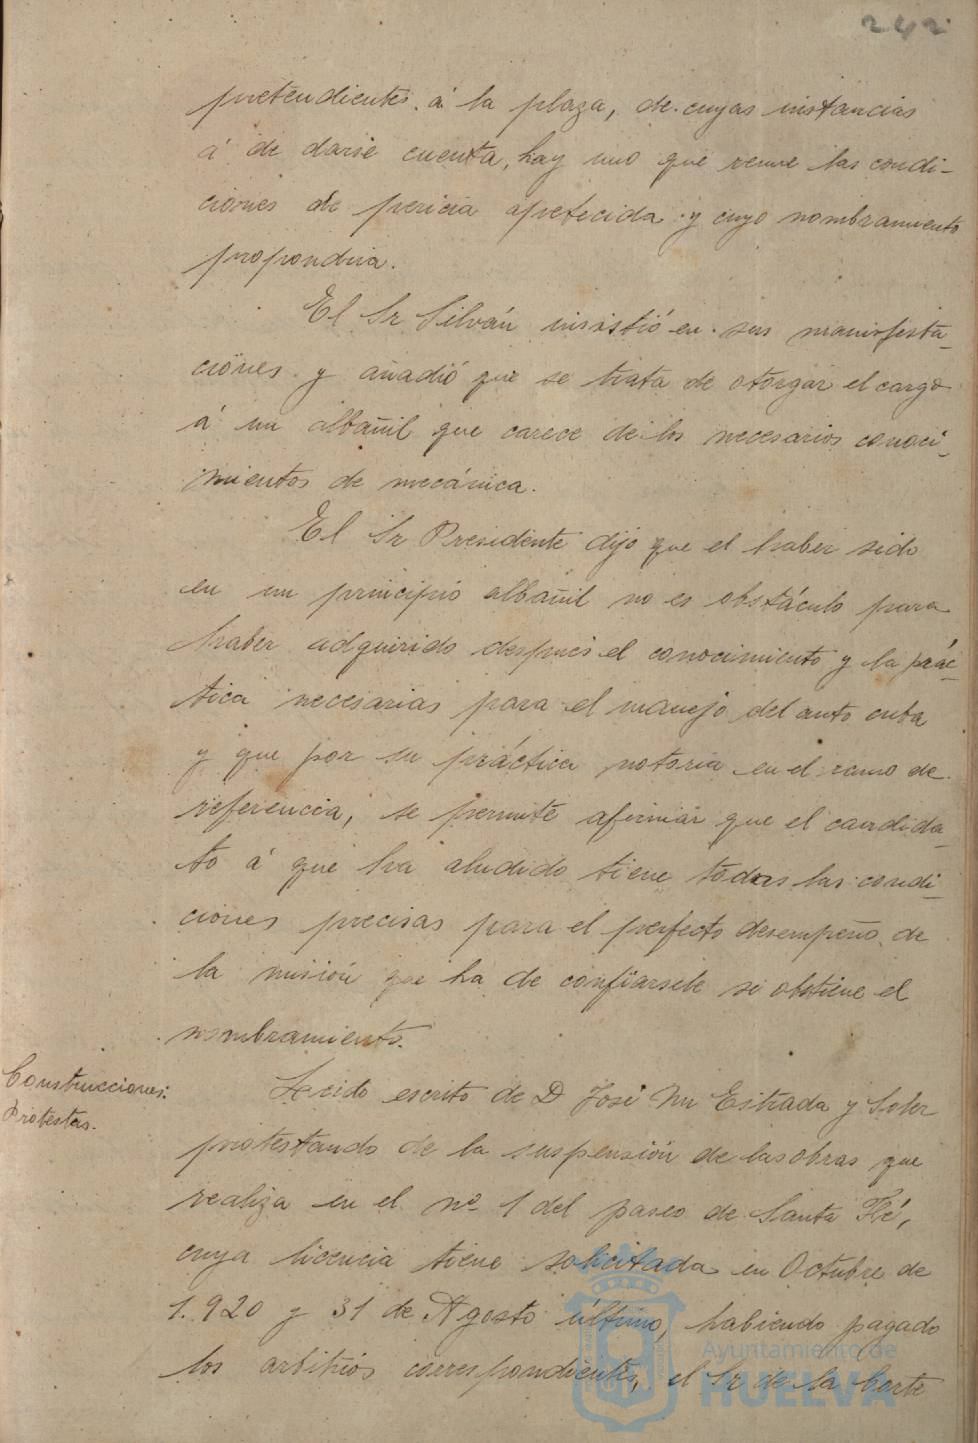 242
pretendientes á la plaza, de cuyas instancias
á de darse cuenta, hay uno que reune las condi-
ciones de pericia apetecida y cuyo nombramiento
propondria.
El Sr Silván insistió en sus manifesta-
ciones y añadió que se trata de otorgar el cargo
á un albañil que carece de los necesarios conoci-
mientos de mecánica.
El Sr Presidente dijo que el haber sido
en un principio albañil no es obstáculo para
haber adquirido despues el conocimiento y la prác-
tica necesarias para el manejo del auto cuba
y que por su práctica notoria en el ramo de
referencia, se permite afirmar que el candida-
to á que ha aludido tiene todas las condi-
ciones precisas para el perfecto desempeño de
la misión que ha de confiarsele si obtiene el
nombramiento.
Construcciones:
Protestas.
Leido escrito de D José Mª Estrada y Soler
protestando de la suspensión de las obras que
realiza en el nº 1 del paseo de Santa Fé,
cuya licencia tiene solicitada en Octubre de
1.920 y 31 de Agosto último, habiendo pagado
los arbitrios correspondientes, el Sr de la Corte
Ayuntamiento de
HUELVA